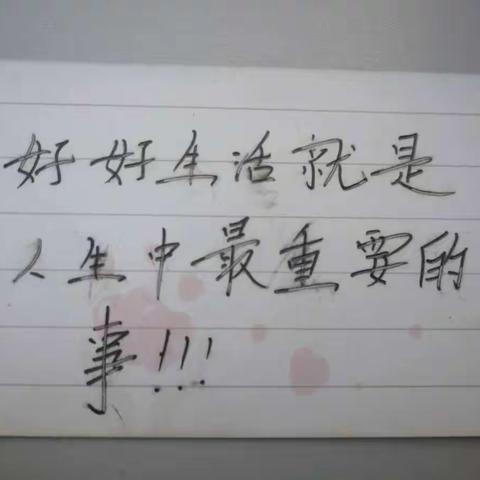 好好生活就是
人生中最重要的
事!!!